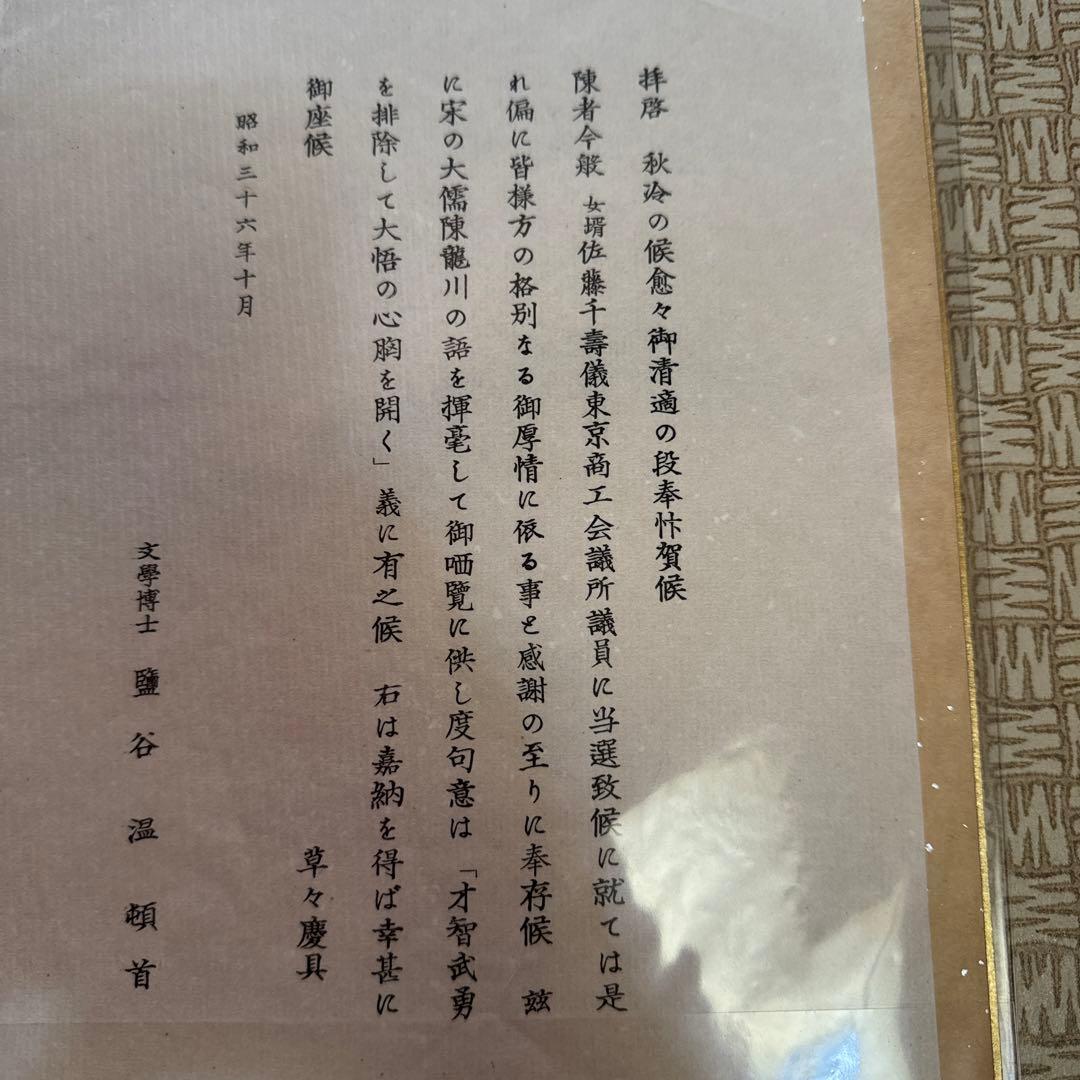 拝啓　秋冷の候愈々御清適の段奉忭賀候
陳者今般　女壻佐藤千壽儀東京商工会議所議員に当選致候に就ては是
れ偏に皆様方の格別なる御厚情に依る事と感謝の至りに奉存候　玆
に宋の大儒陳龍川の語を揮毫して御哂覽に供し度句意は「才智武勇
を排除して大悟の心胸を開く」義に有之候　右は嘉納を得ば幸甚に
御座候
草々慶具
昭和三十六年十月
文學博士　鹽谷温　頓首